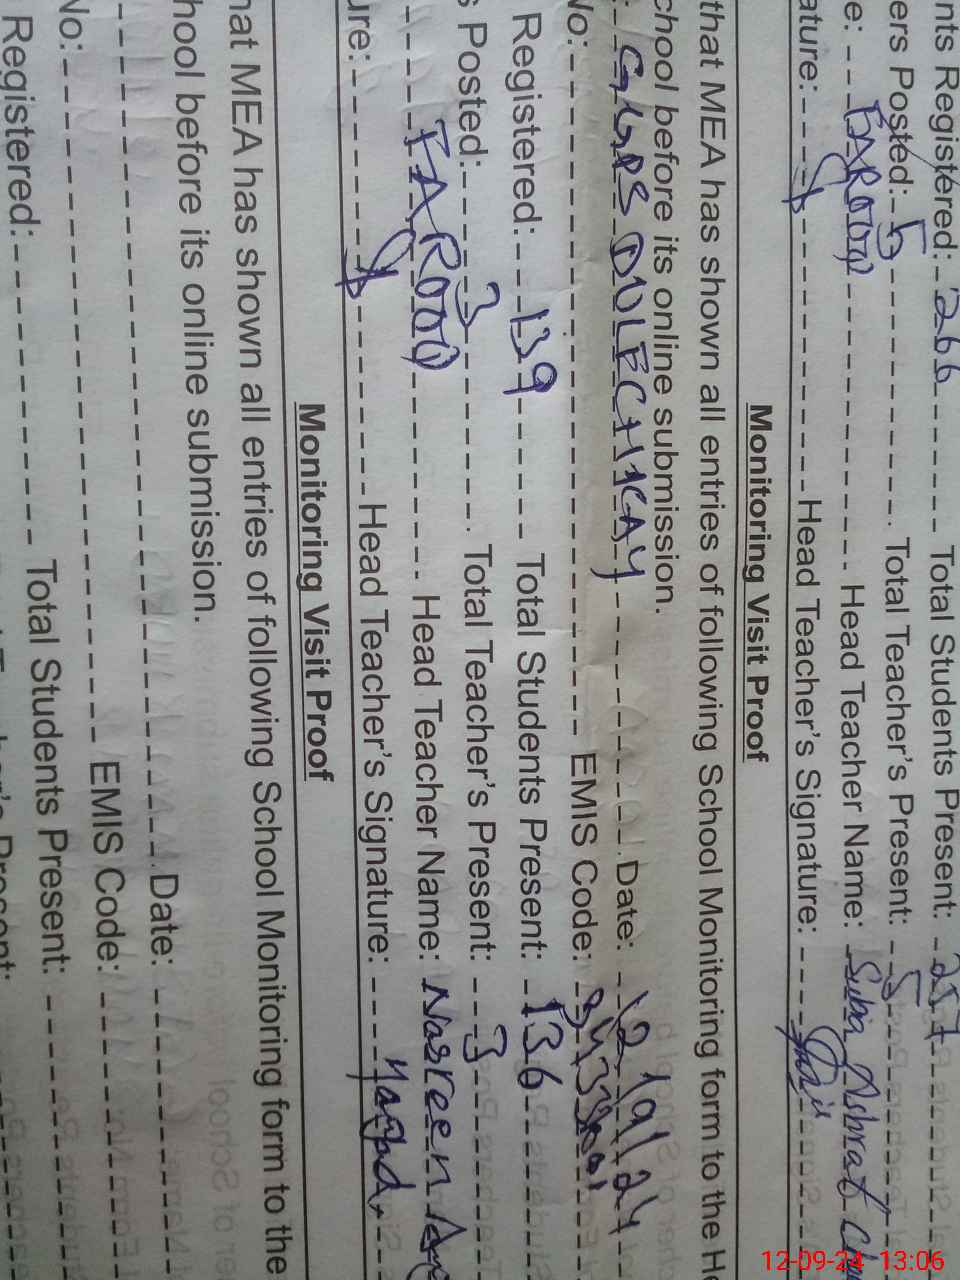 nts Registered: 266 Total Students Present: 257
ers Posted: 5 Total Teacher's Present: 5
e: FAROOQ Head Teacher Name: Subia Ashraf
ature: Head Teacher's Signature:
Monitoring Visit Proof
that MEA has shown all entries of following School Monitoring form to the H
chool before its online submission.
: GGPS DULECHKAY Date: 12/9/24
No: EMIS Code:
Registered: 139 Total Students Present: 136
s Posted: 3 Total Teacher's Present: 3
FAROOQ Head Teacher Name: Nasreen
ure: Head Teacher's Signature:
Monitoring Visit Proof
hat MEA has shown all entries of following School Monitoring form to the
hool before its online submission.
Date:
No: EMIS Code:
Registered: Total Students Present:
12-09-24 13:06